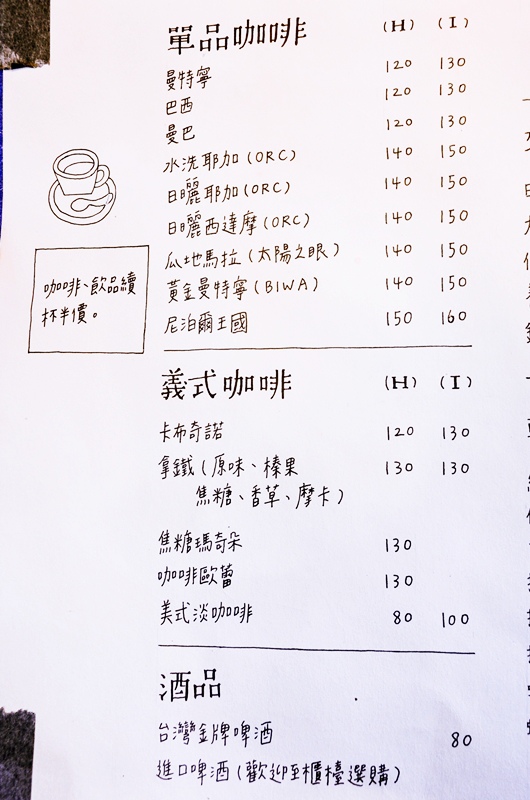 單品咖啡 (H) (I)
曼特寧 120 130
巴西 120 130
曼巴 120 130
水洗耶加(ORC) 140 150
日曬耶加(ORC) 140 150
日曬西達摩(ORC) 140 150
瓜地馬拉(太陽之眼) 140 150
黃金曼特寧(BIWA) 140 150
尼泊爾王國 150 160
咖啡、飲品續
杯半價。
義式咖啡 (H) (I)
卡布奇諾 120 130
拿鐵(原味、榛果 130 130
焦糖、香草、摩卡)
焦糖瑪奇朵 130
咖啡歐蕾 130
美式淡咖啡 80 100
酒品
台灣金牌啤酒 80
進口啤酒(歡迎至櫃檯選購)